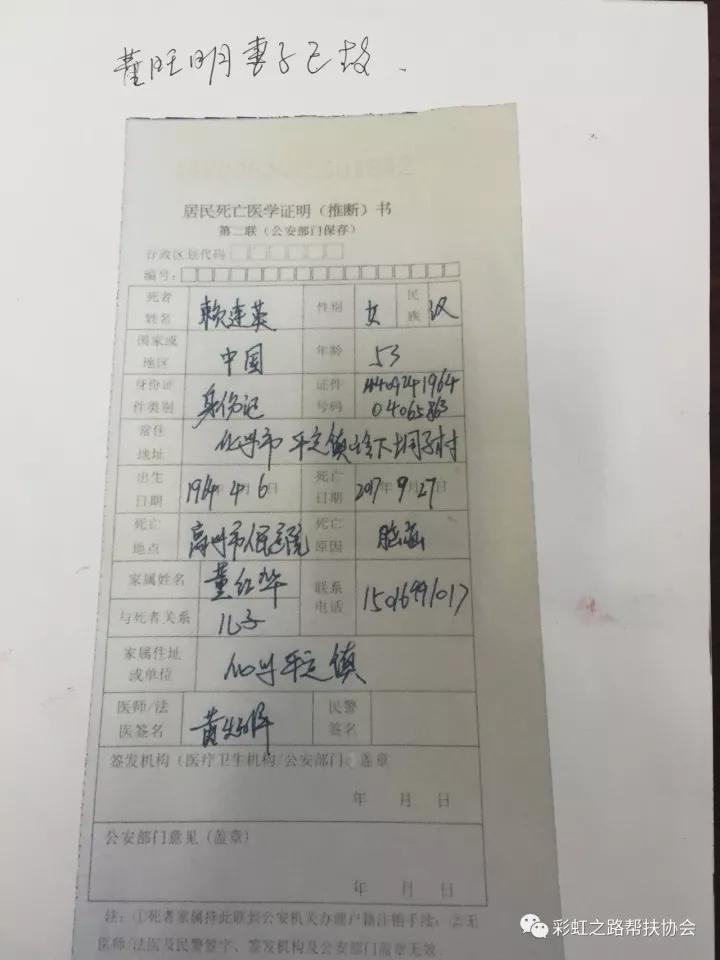 董旺明妻子已故.
居民死亡医学证明（推断）书
第二联（公安部门保存）
行政区划代码
编号：
死者姓名 赖连英 性别 女 民族 汉
国家或地区 中国 年龄 53
身份证件类别 身份证 证件号码 4409241964
常住地址 化州市平定镇
出生日期 1964年4月6日 死亡日期 2017年9月27日
死亡地点 高州市人民医院 死亡原因
家属姓名 董红华 联系电话
与死者关系 儿子
家属住址或单位 化州平定镇
医师/法医签名 民警签名
签发机构（医疗卫生机构/公安部门）盖章
年 月 日
公安部门意见（盖章）
年 月 日
注：①死者家属持此联到公安机关办理户籍注销手续；②无
医师/法医及民警签字、签发机构及公安部门盖章无效.
彩虹之路帮扶协会